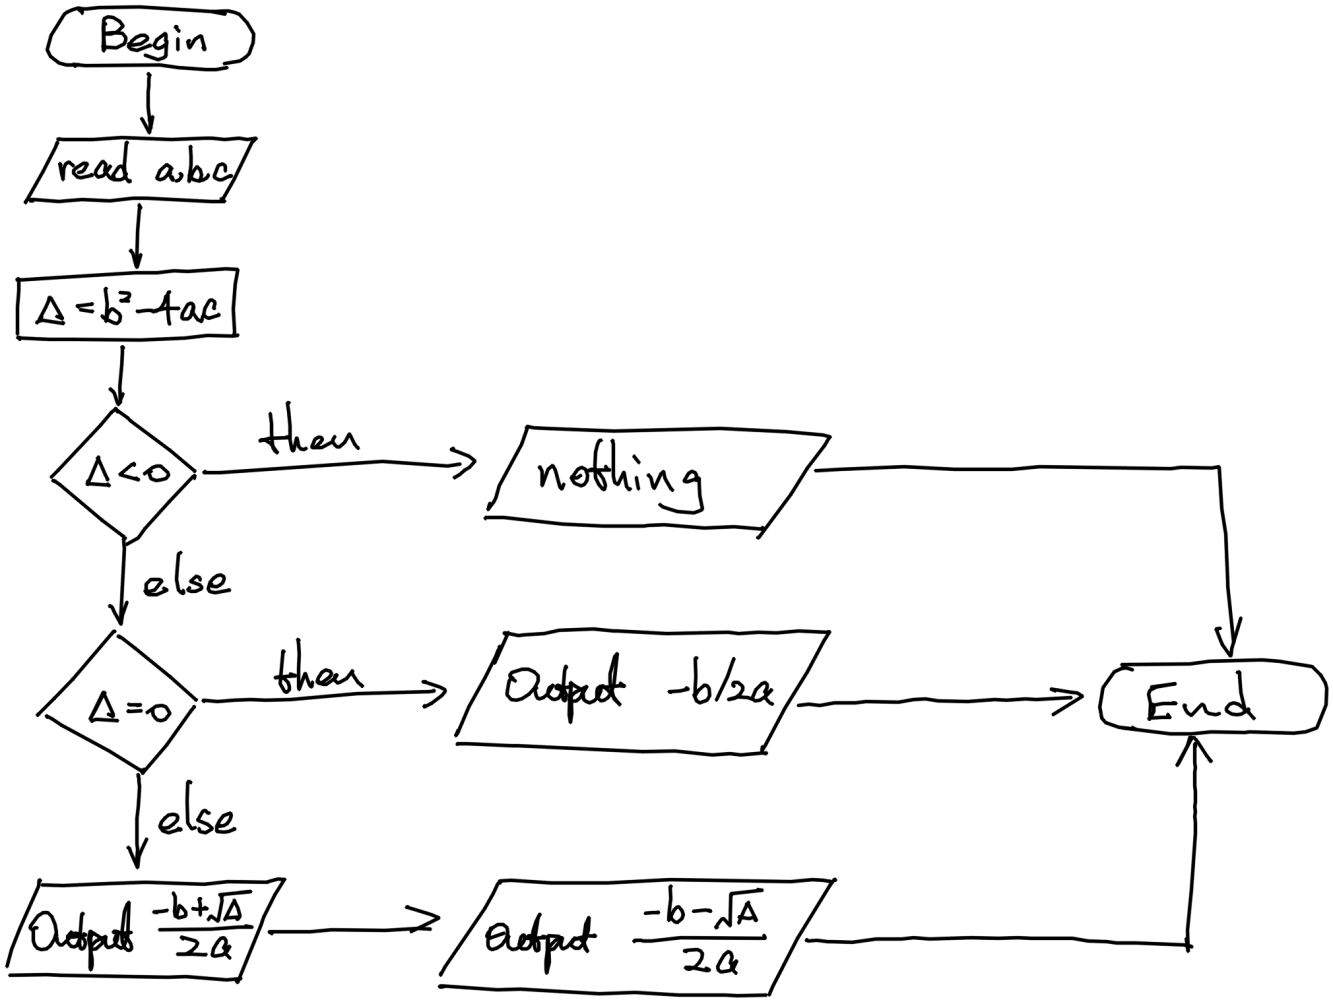 Begin
read a.b.c
Δ=b²-4ac
Δ<0
then
nothing
else
Δ=0
then
Output -b/2a
End
else
Output (-b+√Δ)/2a
Output (-b-√Δ)/2a